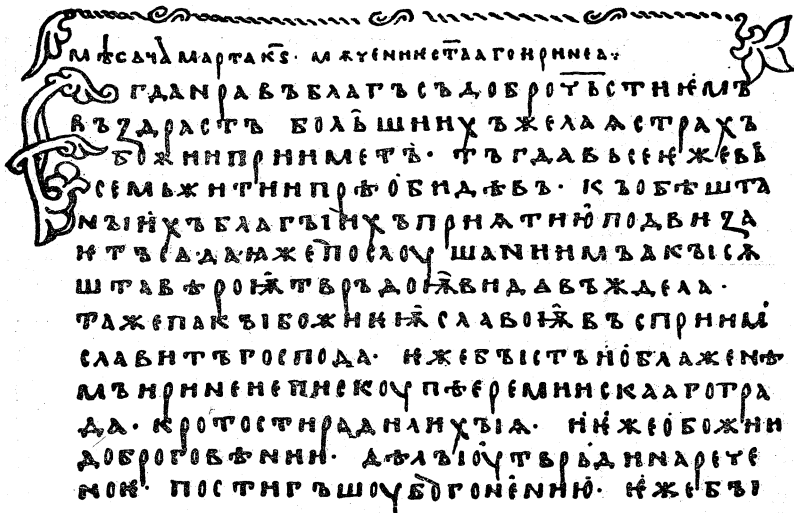 мѣсѧца марта к҃ѕ· мѫчение ст҃ааго иринеа·
Егда нравъ благъ съ доброчьстиѥмь
въздрастъ большиихъ желаѧ страхъ
божии приметъ· тъгда вьсе ѥже вь
семь житии прѣобидѣвъ· къ обѣшта
нꙑихъ благꙑихъ приѩтию подвиза
ѥтъ сѧ· да ꙗже послоушаниимъ акꙑ сѫ
шта вѣроѭ тврьдоѭ видѣвъ ждела·
та же пакꙑ божиѥѭ славоѭ въсприимъ
славитъ господа· ѥже бꙑстъ и о блаженѣ
мь иринеи епискоупѣ серемиискааго гра
да· кротости ради лихꙑѩ· и ѥже о божии
доброговѣнии· дѣлꙑ оутврьди нарече
ноѥ· постигъшоу бо гонению· ѥже бꙑ